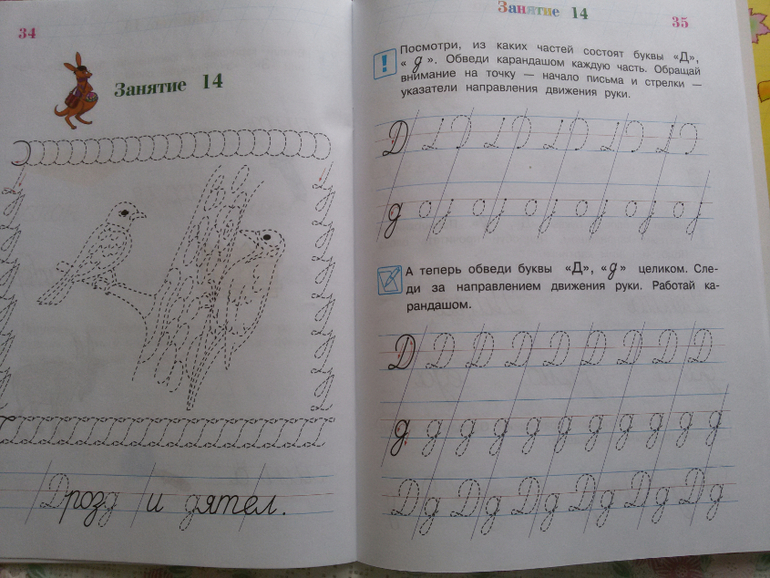 34
Занятие 14
Дрозд и дятел.
Занятие 14
35
! Посмотри, из каких частей состоят буквы «Д»,
« д ». Обведи карандашом каждую часть. Обращай
внимание на точку — начало письма и стрелки —
указатели направления движения руки.
Д
д
А теперь обведи буквы «Д», «д» целиком. Сле-
ди за направлением движения руки. Работай ка-
рандашом.
Д Д Д Д Д Д Д Д Д
д д д д д д д д д д
Дд Дд Дд Дд Дд Дд